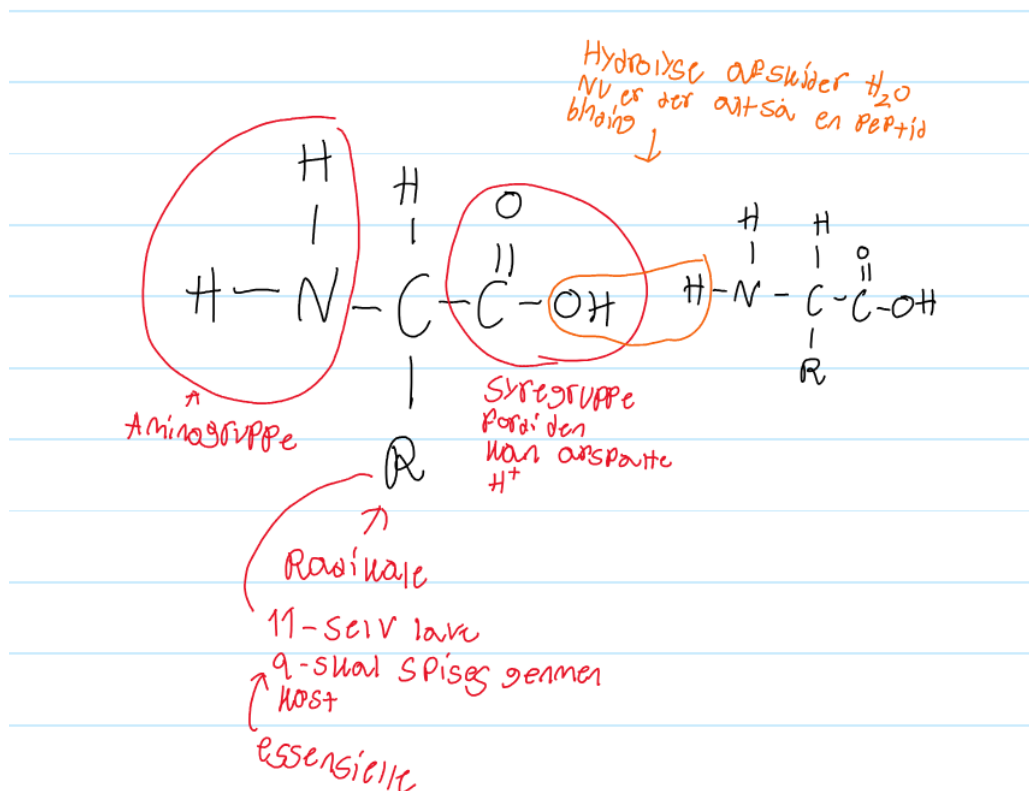 Hydrolyse afskider H₂O
Nu er der altså en peptid
binding
H
H
O
H
H
O
H-N-C-C-OH
H-N-C-C-OH
R
R
Aminogruppe
Syregruppe
fordi den
kan afspalte
H⁺
Radikale
11-selv lave
9-skal spises gennem
kost
essensielle